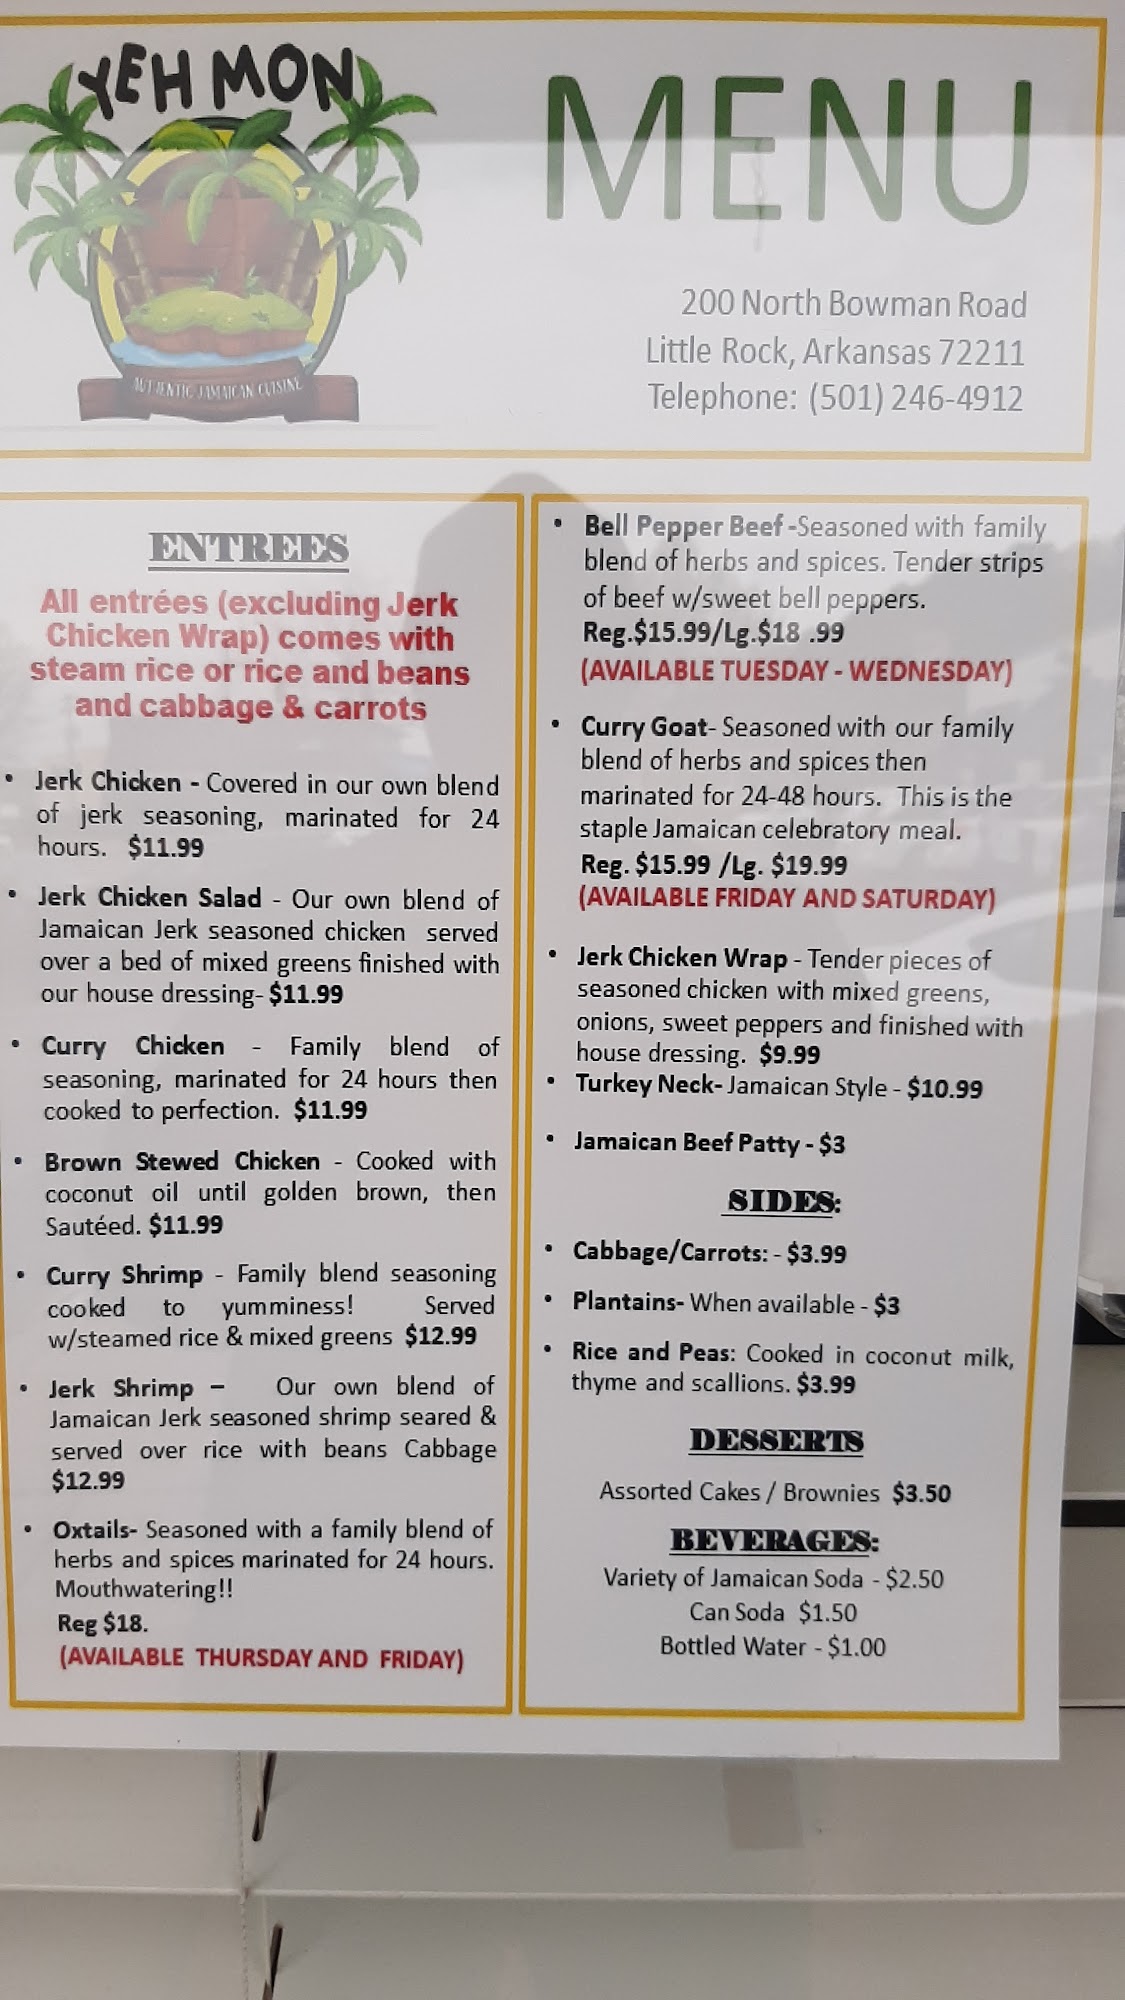 YEH MON
AUTHENTIC JAMAICAN CUISINE
MENU
200 North Bowman Road
Little Rock, Arkansas 72211
Telephone: (501) 246-4912
ENTREES
All entrées (excluding Jerk
Chicken Wrap) comes with
steam rice or rice and beans
and cabbage & carrots
• Jerk Chicken - Covered in our own blend
of jerk seasoning, marinated for 24
hours. $11.99
• Jerk Chicken Salad - Our own blend of
Jamaican Jerk seasoned chicken served
over a bed of mixed greens finished with
our house dressing- $11.99
• Curry Chicken - Family blend of
seasoning, marinated for 24 hours then
cooked to perfection. $11.99
• Brown Stewed Chicken - Cooked with
coconut oil until golden brown, then
Sautéed. $11.99
• Curry Shrimp - Family blend seasoning
cooked to yumminess! Served
w/steamed rice & mixed greens $12.99
• Jerk Shrimp – Our own blend of
Jamaican Jerk seasoned shrimp seared &
served over rice with beans Cabbage
$12.99
• Oxtails- Seasoned with a family blend of
herbs and spices marinated for 24 hours.
Mouthwatering!!
Reg $18.
(AVAILABLE THURSDAY AND FRIDAY)
• Bell Pepper Beef -Seasoned with family
blend of herbs and spices. Tender strips
of beef w/sweet bell peppers.
Reg.$15.99/Lg.$18 .99
(AVAILABLE TUESDAY - WEDNESDAY)
• Curry Goat- Seasoned with our family
blend of herbs and spices then
marinated for 24-48 hours. This is the
staple Jamaican celebratory meal.
Reg. $15.99 /Lg. $19.99
(AVAILABLE FRIDAY AND SATURDAY)
• Jerk Chicken Wrap - Tender pieces of
seasoned chicken with mixed greens,
onions, sweet peppers and finished with
house dressing. $9.99
• Turkey Neck- Jamaican Style - $10.99
• Jamaican Beef Patty - $3
SIDES:
• Cabbage/Carrots: - $3.99
• Plantains- When available - $3
• Rice and Peas: Cooked in coconut milk,
thyme and scallions. $3.99
DESSERTS
Assorted Cakes / Brownies $3.50
BEVERAGES:
Variety of Jamaican Soda - $2.50
Can Soda $1.50
Bottled Water - $1.00